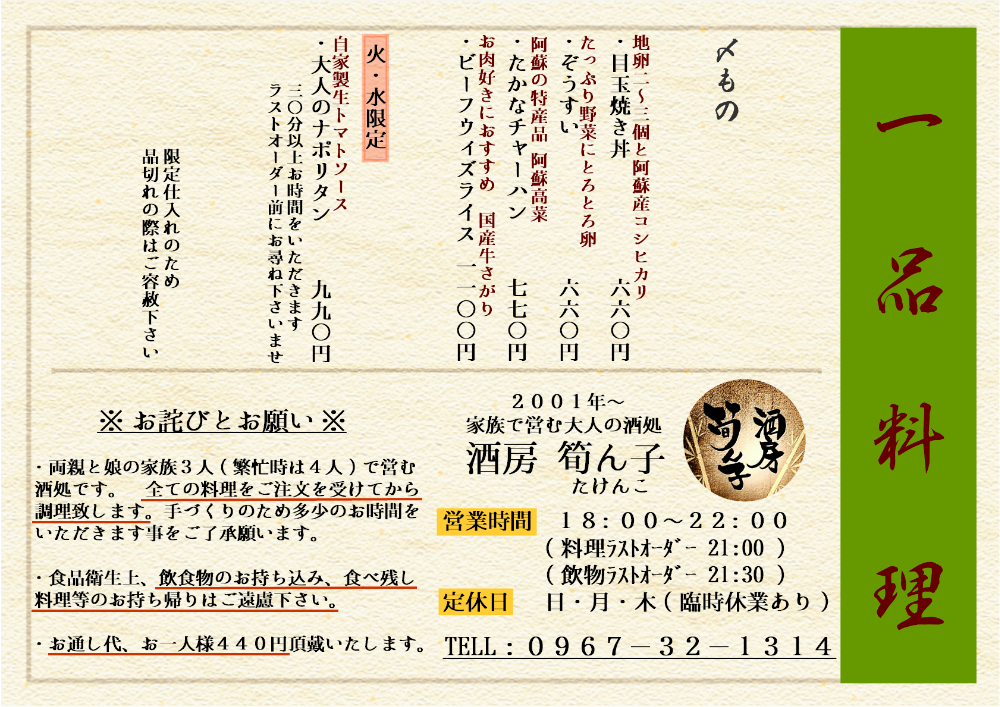 一品料理
〆もの
地卵二〜三個と阿蘇産コシヒカリ
・目玉焼き丼 六六〇円
たっぷり野菜にとろとろ卵
・ぞうすい 六六〇円
阿蘇の特産品 阿蘇高菜
・たかなチャーハン 七七〇円
お肉好きにおすすめ 国産牛さがり
・ビーフウィズライス 一一〇〇円
火・水限定
自家製生トマトソース
・大人のナポリタン 九九〇円
三〇分以上お時間をいただきます
ラストオーダー前にお尋ね下さいませ
限定仕入れのため
品切れの際はご容赦下さい
※ お詫びとお願い ※
・両親と娘の家族３人(繁忙時は４人)で営む
酒処です。 全ての料理をご注文を受けてから
調理致します。手づくりのため多少のお時間を
いただきます事をご了承願います。
・食品衛生上、飲食物のお持ち込み、食べ残し
料理等のお持ち帰りはご遠慮下さい。
・お通し代、お一人様４４０円頂戴いたします。
２００１年〜
家族で営む大人の酒処
酒房 筍ん子
たけんこ
酒房
筍ん子
営業時間 １８:００〜２２:００
(料理ﾗｽﾄｵｰﾀﾞｰ 21:00 )
(飲物ﾗｽﾄｵｰﾀﾞｰ 21:30 )
定休日 日・月・木(臨時休業あり)
TELL:０９６７－３２－１３１４